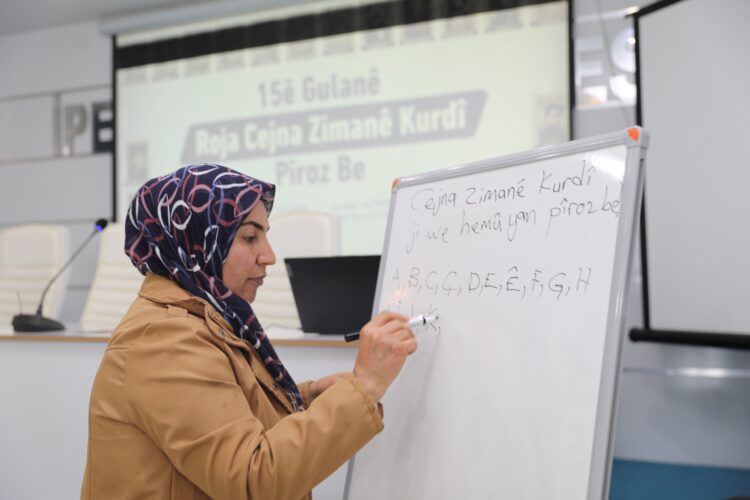 15ê Gulanê
Roja Cejna Zimanê Kurdî
Pîroz Be
Cejna Zimanê Kurdî
ji we hemûyan pîroz be
A, B, C, Ç, D, E, Ê, F, G, H
K,